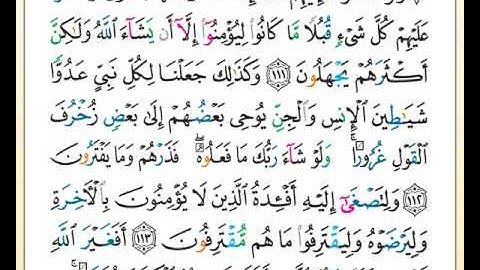 عَلَيْهِمْ كُلَّ شَىْءٍ قُبُلًا مَّا كَانُوا۟ لِيُؤْمِنُوٓا۟ إِلَّآ أَن يَشَآءَ ٱللَّهُ وَلَٰكِنَّ
أَكْثَرَهُمْ يَجْهَلُونَ ١١١ وَكَذَٰلِكَ جَعَلْنَا لِكُلِّ نَبِىٍّ عَدُوًّا
شَيَٰطِينَ ٱلْإِنسِ وَٱلْجِنِّ يُوحِى بَعْضُهُمْ إِلَىٰ بَعْضٍ زُخْرُفَ
ٱلْقَوْلِ غُرُورًا ۚ وَلَوْ شَآءَ رَبُّكَ مَا فَعَلُوهُ ۖ فَذَرْهُمْ وَمَا يَفْتَرُونَ
١١٢ وَلِتَصْغَىٰٓ إِلَيْهِ أَفْـِٔدَةُ ٱلَّذِينَ لَا يُؤْمِنُونَ بِٱلْءَاخِرَةِ
وَلِيَرْضَوْهُ وَلِيَقْتَرِفُوا۟ مَا هُم مُّقْتَرِفُونَ ١١٣ أَفَغَيْرَ ٱللَّهِ